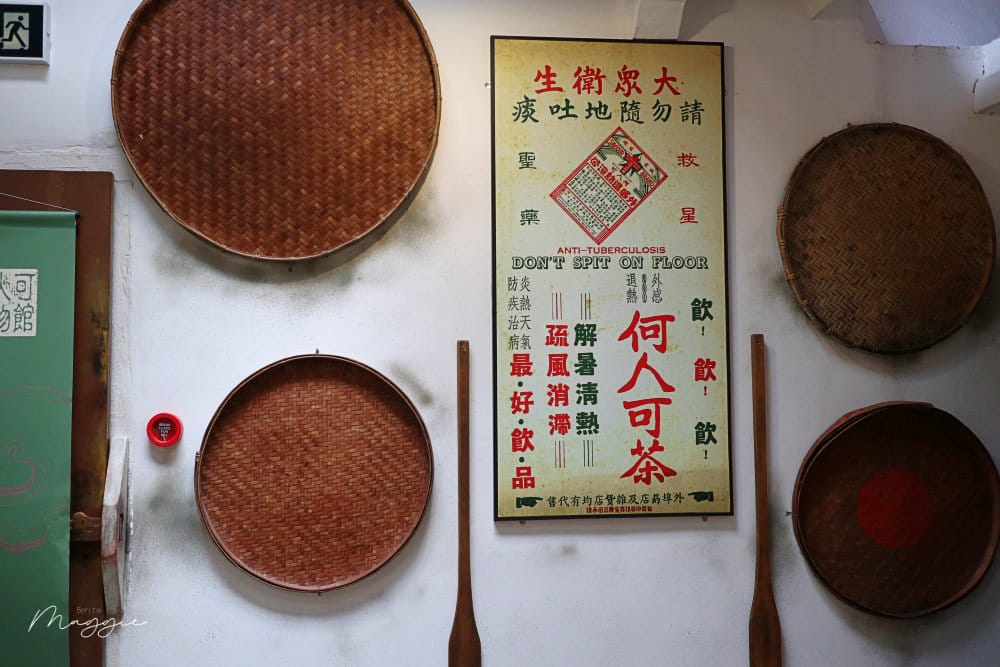 大眾衛生
請勿隨地吐痰
救星
聖藥
ANTI-TUBERCULOSIS
DON'T SPIT ON FLOOR
飲！飲！飲！
外感
退熱
何人可茶
解暑清熱
疏風消滯
炎熱天氣
防疾治病
最·好·飲·品
外埠藥店及雜貨店均有代售
可館
人物
Berita
Maggie